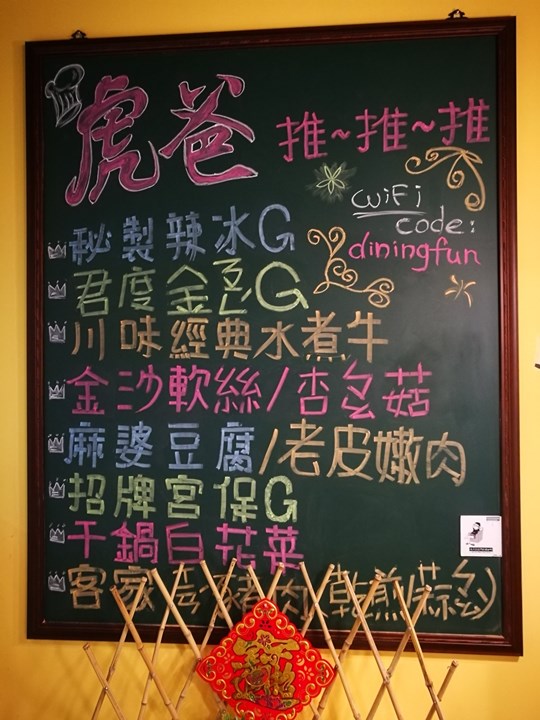 虎爸
推~推~推
WiFi
code:
diningfun
秘製辣冰G
君度金巴G
川味經典水煮牛
金沙軟絲/杏仑菇
麻婆豆腐/老皮嫩肉
招牌宮保G
干鍋白花菜
客家 豬肉(乾煎/蒜